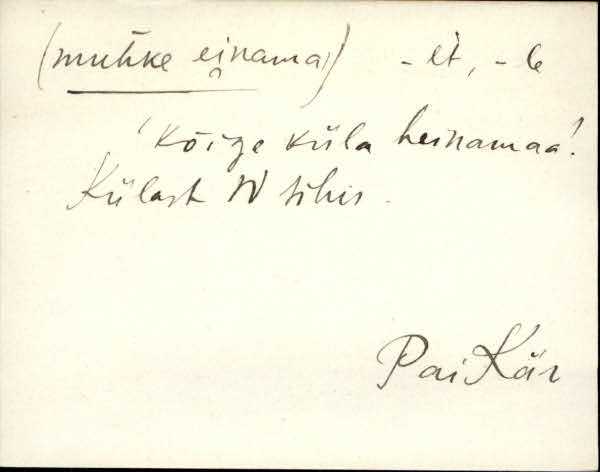 (mutike einama) -et, -le
'Kõige küla heinamaa'.
Külast N sihis.
Pai Kär